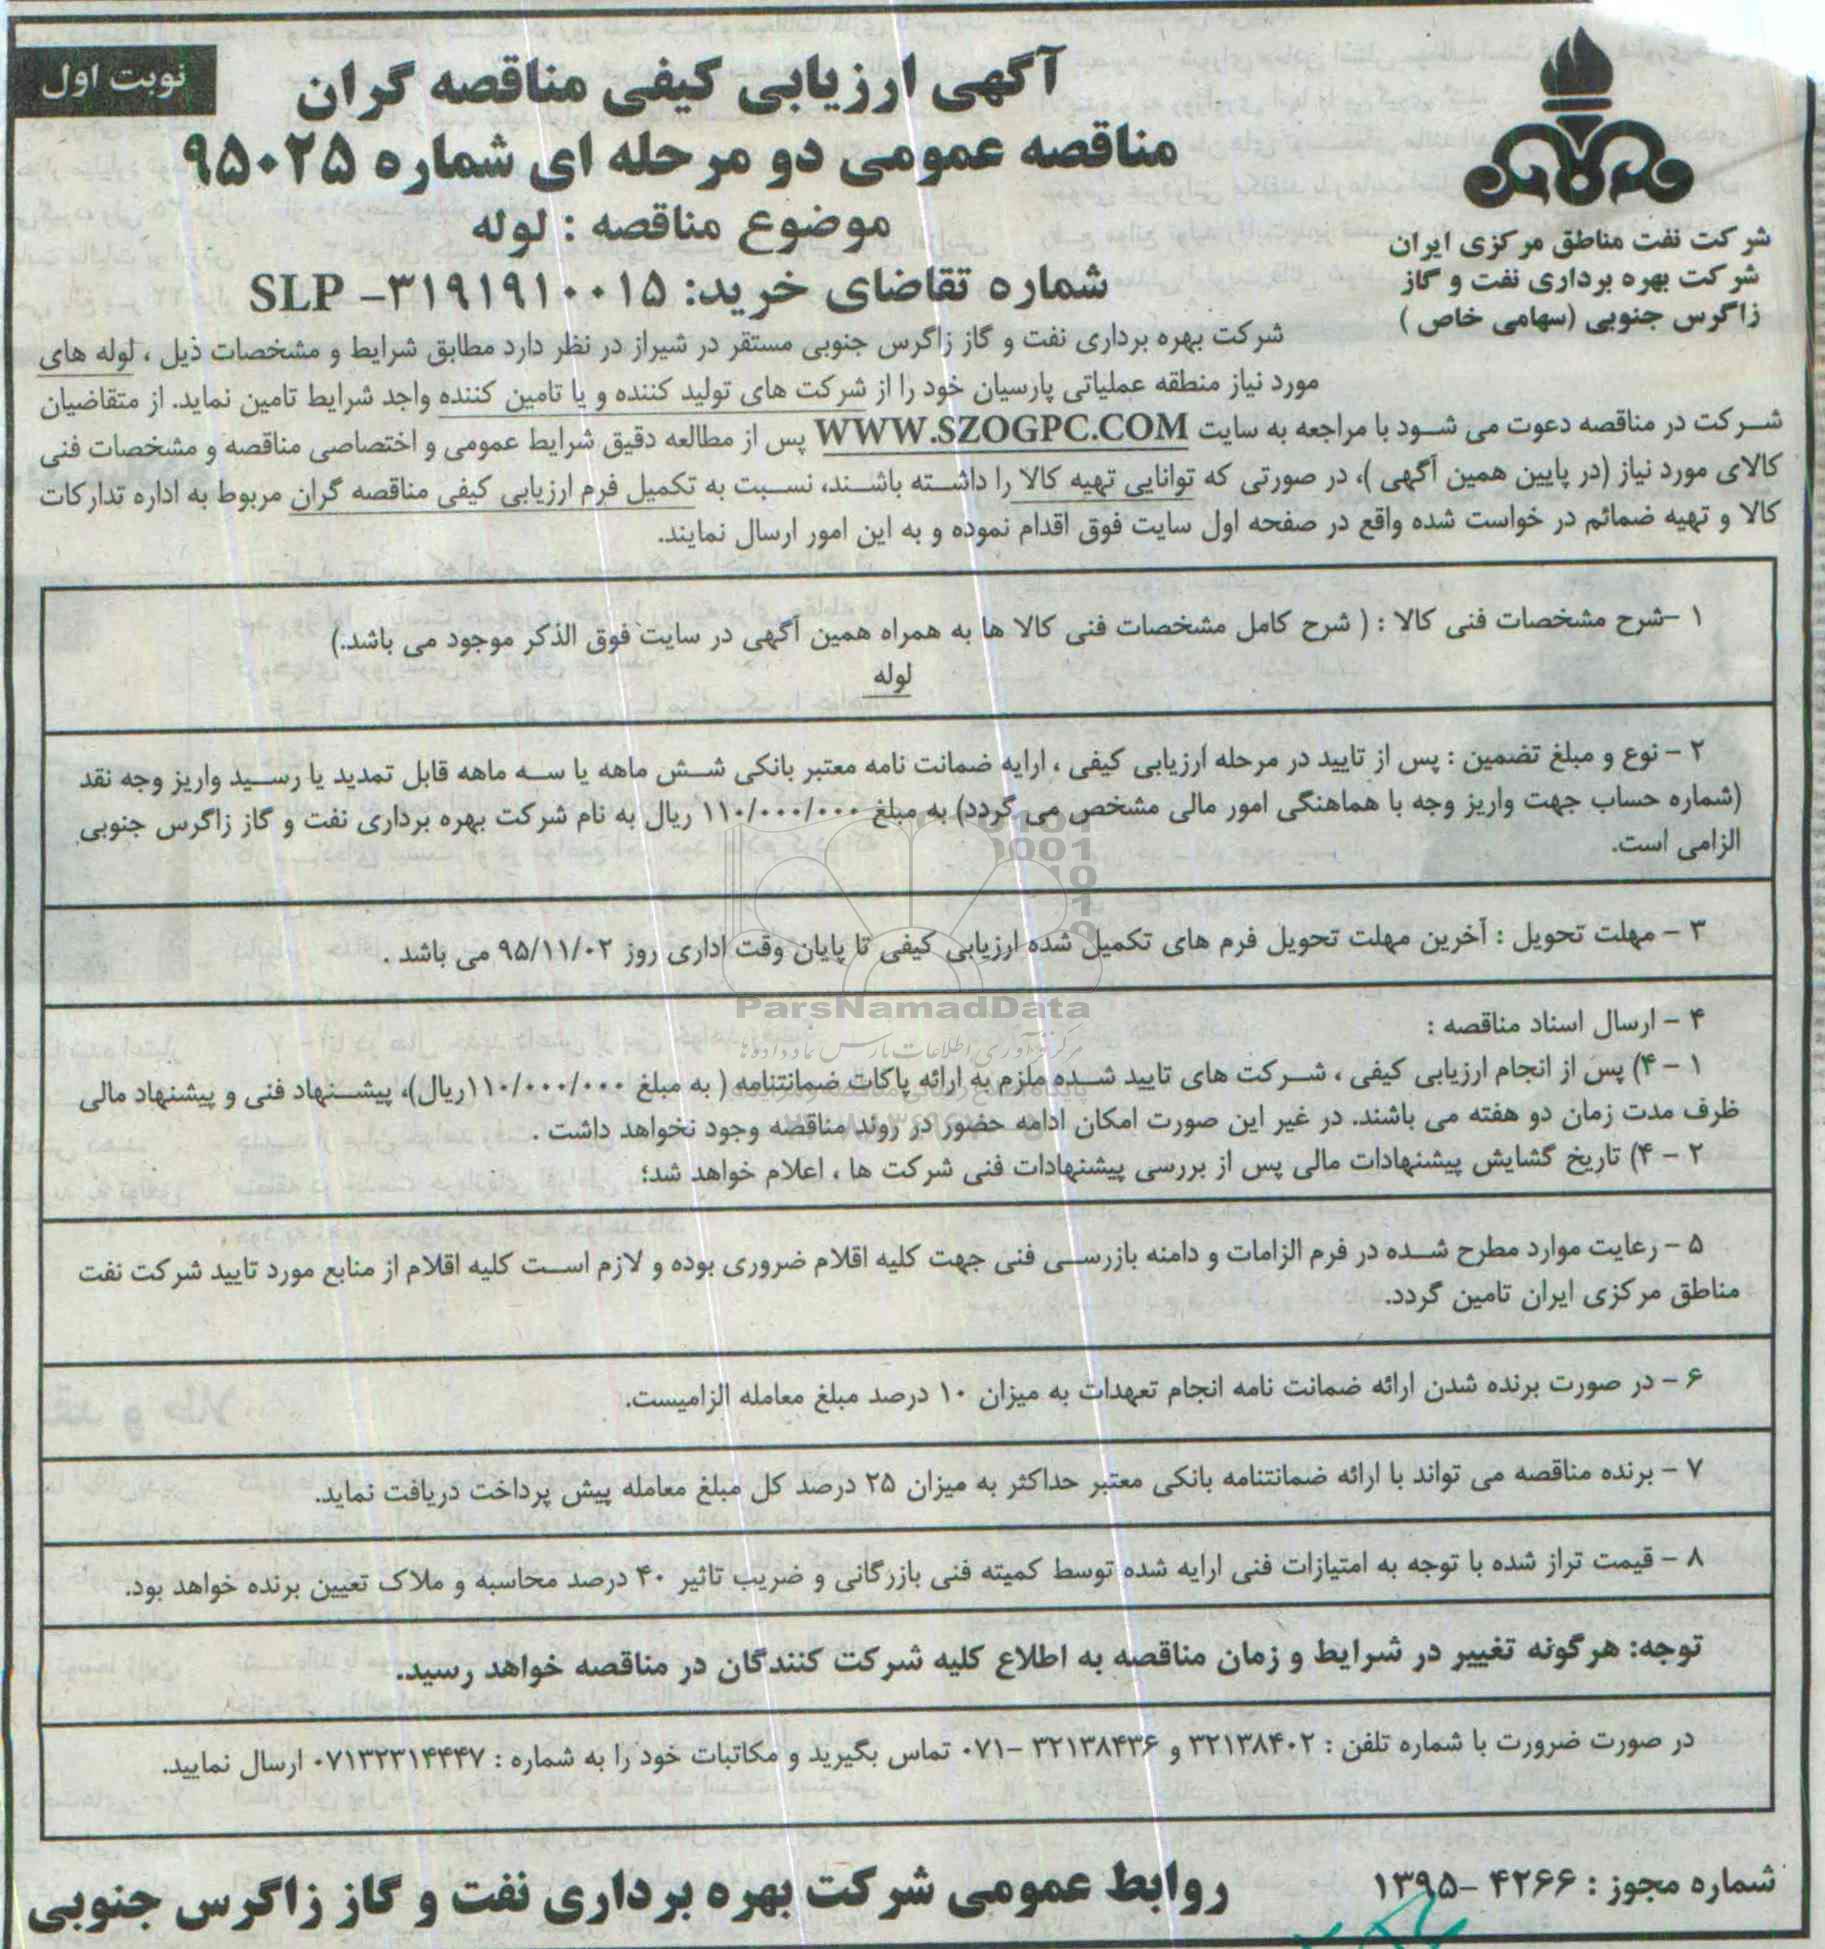 نوبت اول
آگهی ارزیابی کیفی مناقصه گران
مناقصه عمومی دو مرحله ای شماره ۹۵۰۲۵
موضوع مناقصه : لوله
شماره تقاضای خرید: SLP -۳۱۹۱۹۱۰۰۱۵
شرکت نفت مناطق مرکزی ایران
شرکت بهره برداری نفت و گاز
زاگرس جنوبی (سهامی خاص )
شرکت بهره برداری نفت و گاز زاگرس جنوبی مستقر در شیراز در نظر دارد مطابق شرایط و مشخصات ذیل ، لوله های
مورد نیاز منطقه عملیاتی پارسیان خود را از شرکت های تولید کننده و یا تامین کننده واجد شرایط تامین نماید. از متقاضیان
شرکت در مناقصه دعوت می شود با مراجعه به سایت WWW.SZOGPC.COM پس از مطالعه دقیق شرایط عمومی و اختصاصی مناقصه و مشخصات فنی
کالای مورد نیاز (در پایین همین آگهی )، در صورتی که توانایی تهیه کالا را داشته باشند، نسبت به تکمیل فرم ارزیابی کیفی مناقصه گران مربوط به اداره تدارکات
کالا و تهیه ضمائم در خواست شده واقع در صفحه اول سایت فوق اقدام نموده و به این امور ارسال نمایند.
۱ –شرح مشخصات فنی کالا : ( شرح کامل مشخصات فنی کالا ها به همراه همین آگهی در سایت فوق الذکر موجود می باشد.)
لوله
۲ – نوع و مبلغ تضمین : پس از تایید در مرحله ارزیابی کیفی ، ارایه ضمانت نامه معتبر بانکی شش ماهه یا سه ماهه قابل تمدید یا رسید واریز وجه نقد
(شماره حساب جهت واریز وجه با هماهنگی امور مالی مشخص می گردد) به مبلغ ۱۱۰/۰۰۰/۰۰۰ ریال به نام شرکت بهره برداری نفت و گاز زاگرس جنوبی
الزامی است.
۳ – مهلت تحویل : آخرین مهلت تحویل فرم های تکمیل شده ارزیابی کیفی تا پایان وقت اداری روز ۹۵/۱۱/۰۲ می باشد .
ParsNamadData
مرکز فرآوری اطلاعات پارس نماد داده ها
۴ – ارسال اسناد مناقصه :
۱ – ۴) پس از انجام ارزیابی کیفی ، شرکت های تایید شده ملزم به ارائه پاکات ضمانتنامه ( به مبلغ ۱۱۰/۰۰۰/۰۰۰ریال)، پیشنهاد فنی و پیشنهاد مالی
ظرف مدت زمان دو هفته می باشند. در غیر این صورت امکان ادامه حضور در روند مناقصه وجود نخواهد داشت .
۲ – ۴) تاریخ گشایش پیشنهادات مالی پس از بررسی پیشنهادات فنی شرکت ها ، اعلام خواهد شد؛
۵ – رعایت موارد مطرح شده در فرم الزامات و دامنه بازرسی فنی جهت کلیه اقلام ضروری بوده و لازم است کلیه اقلام از منابع مورد تایید شرکت نفت
مناطق مرکزی ایران تامین گردد.
۶ – در صورت برنده شدن ارائه ضمانت نامه انجام تعهدات به میزان ۱۰ درصد مبلغ معامله الزامیست.
۷ – برنده مناقصه می تواند با ارائه ضمانتنامه بانکی معتبر حداکثر به میزان ۲۵ درصد کل مبلغ معامله پیش پرداخت دریافت نماید.
۸ – قیمت تراز شده با توجه به امتیازات فنی ارایه شده توسط کمیته فنی بازرگانی و ضریب تاثیر ۴۰ درصد محاسبه و ملاک تعیین برنده خواهد بود.
توجه: هرگونه تغییر در شرایط و زمان مناقصه به اطلاع کلیه شرکت کنندگان در مناقصه خواهد رسید.
در صورت ضرورت با شماره تلفن : ۳۲۱۳۸۴۰۲ و ۳۲۱۳۸۴۳۶ –۰۷۱ تماس بگیرید و مکاتبات خود را به شماره : ۰۷۱۳۲۳۱۴۴۴۷ ارسال نمایید.
شماره مجوز : ۴۲۶۶ –۱۳۹۵
روابط عمومی شرکت بهره برداری نفت و گاز زاگرس جنوبی